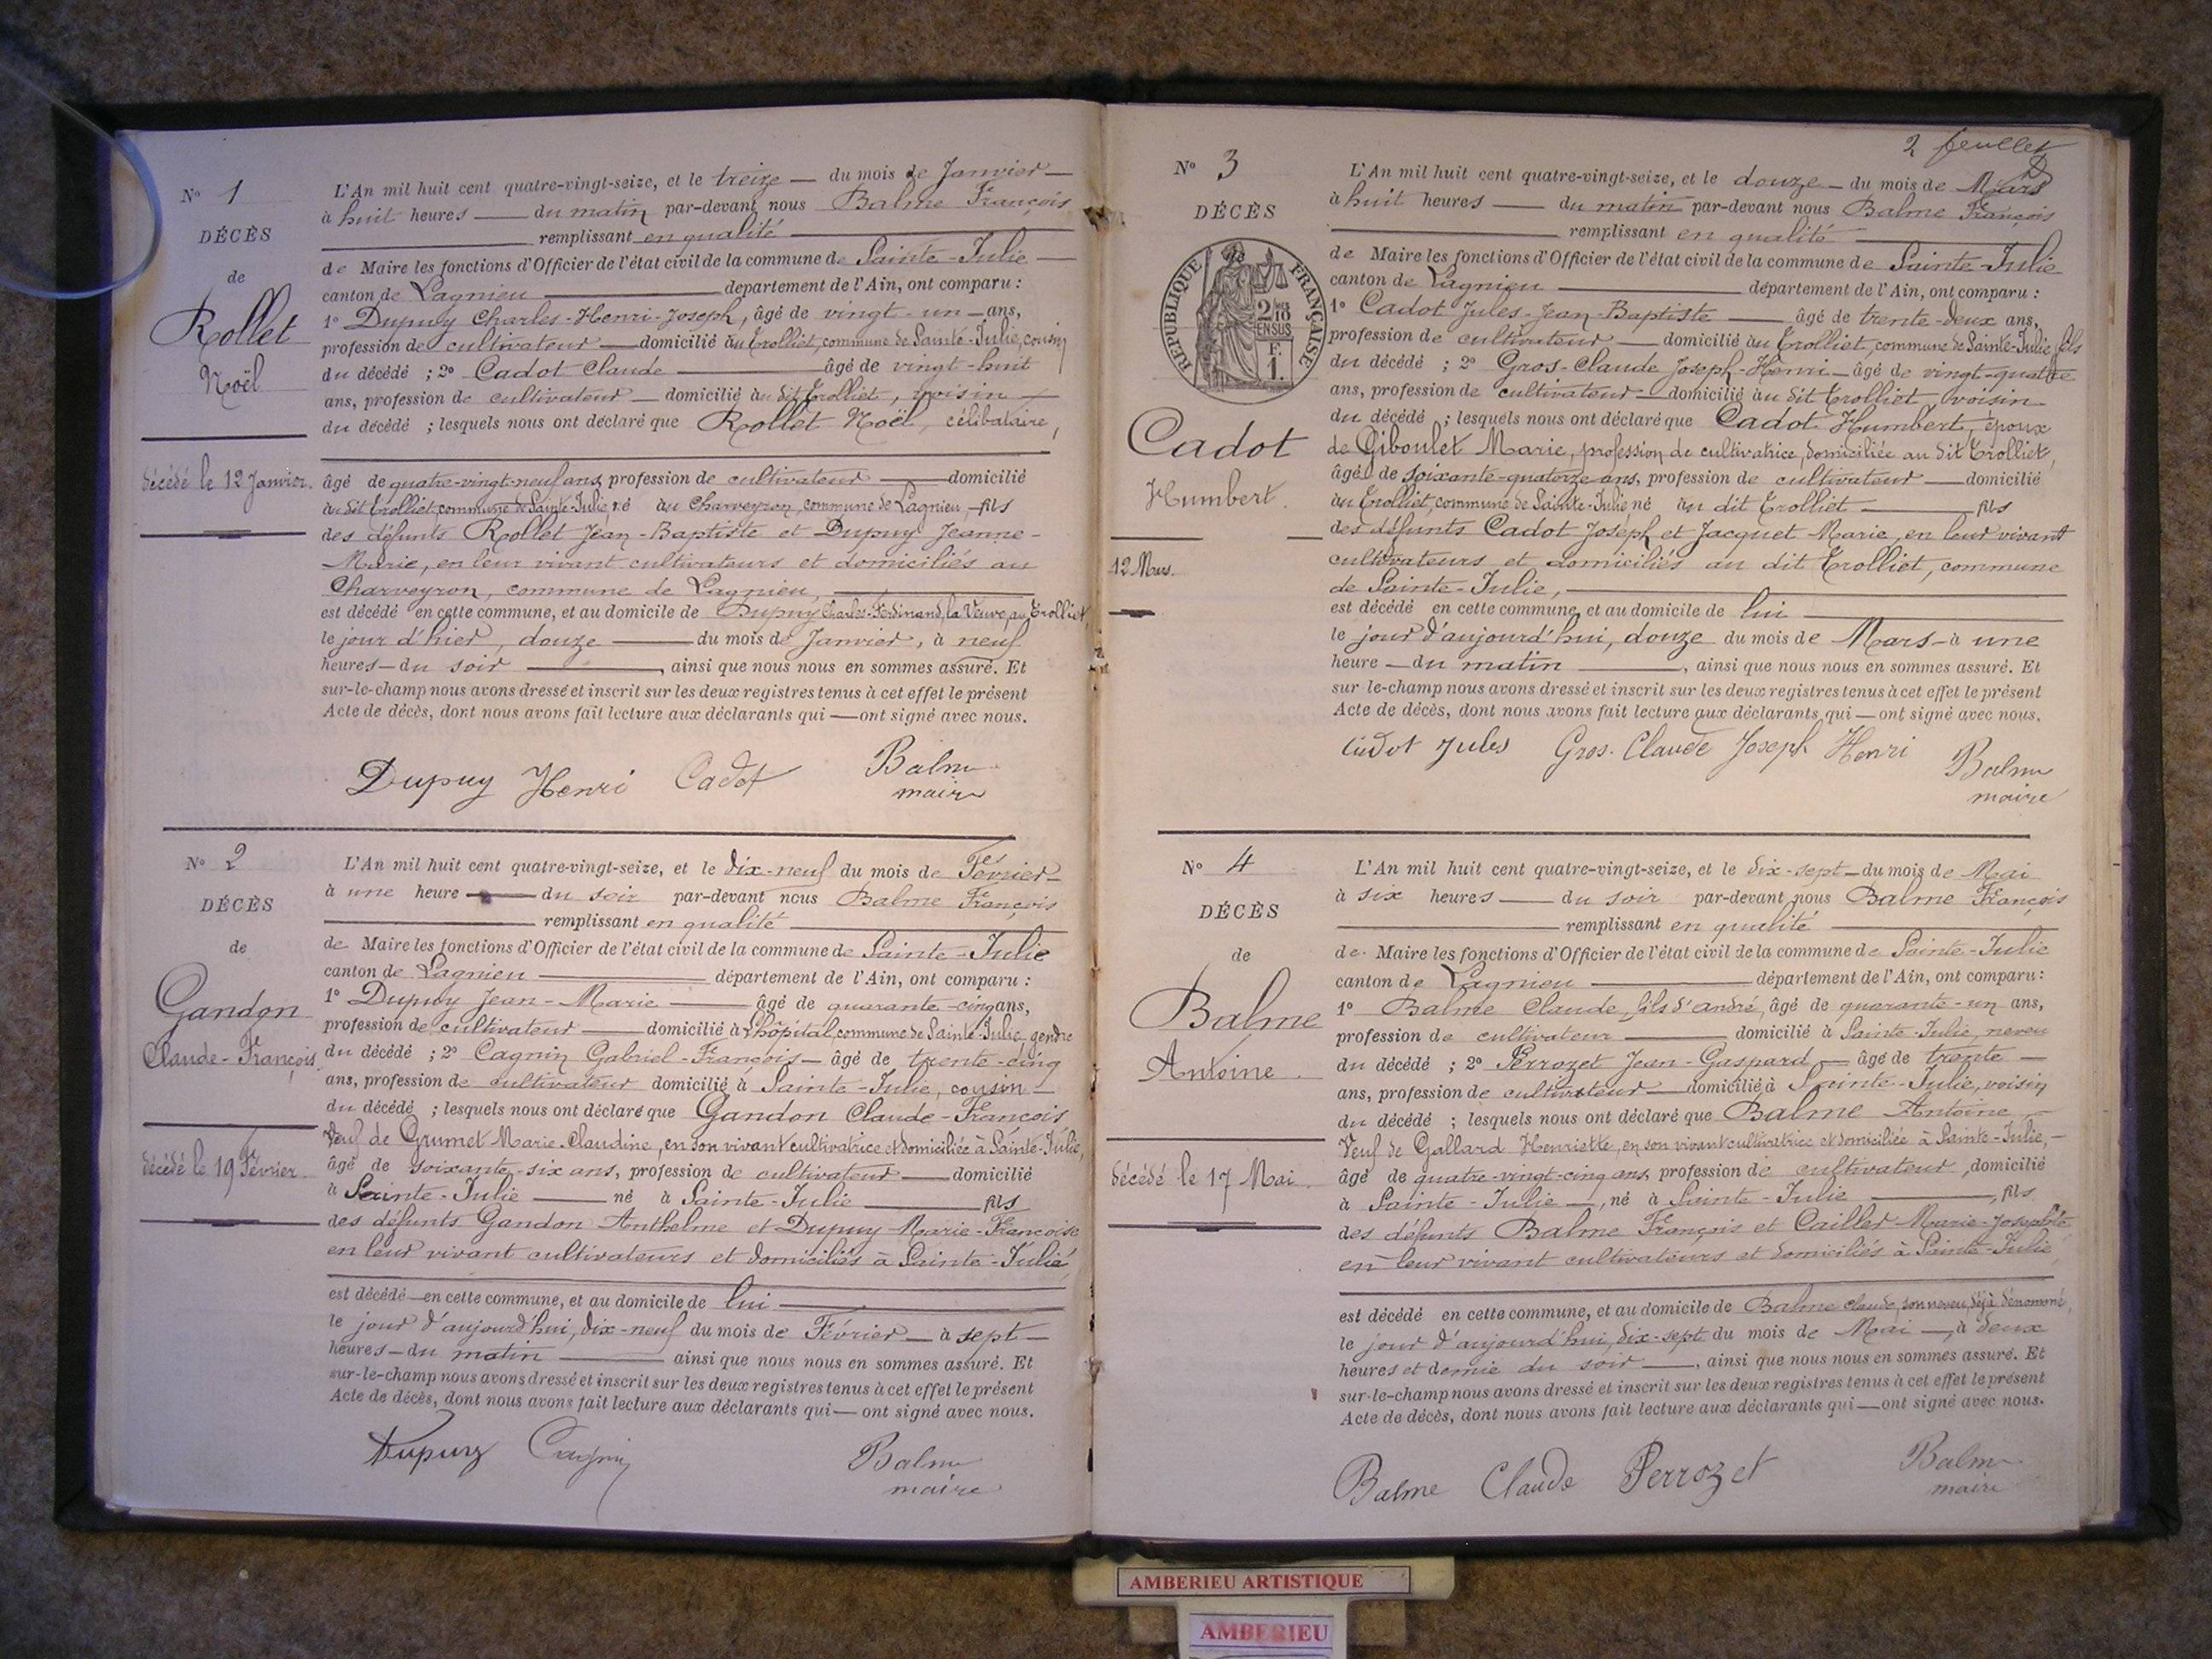 N° 1
DÉCÈS
de
Rollet
Noël
décédé le 12 Janvier.
L'An mil huit cent quatre-vingt-seize, et le treize — du mois de Janvier —
à huit heures — du matin par-devant nous Balme François
remplissant en qualité
de Maire les fonctions d'Officier de l'état civil de la commune de Sainte-Julie —
canton de Lagnieu — département de l'Ain, ont comparu :
1° Dupuy Charles-Henri-Joseph, âgé de vingt-un — ans,
profession de cultivateur — domicilié au Trolliet, commune de Sainte-Julie, cousin
du décédé ; 2° Cadot Claude — âgé de vingt-huit
ans, profession de cultivateur — domicilié au dit Trolliet, voisin —
du décédé ; lesquels nous ont déclaré que Rollet Noël, célibataire,
âgé de quatre-vingt-neuf ans, profession de cultivateur — domicilié
au dit Trolliet, commune de Sainte-Julie, né au Charveyron, commune de Lagnieu, — fils
des défunts Rollet Jean-Baptiste et Dupuy Jeanne-
Marie, en leur vivant cultivateurs et domiciliés au
Charveyron, commune de Lagnieu, —
est décédé en cette commune, et au domicile de Dupuy Charles-Ferdinand, la Veuve, au Trolliet,
le jour d'hier, douze — du mois de Janvier, à neuf
heures — du soir —, ainsi que nous nous en sommes assuré. Et
sur-le-champ nous avons dressé et inscrit sur les deux registres tenus à cet effet le présent
Acte de décès, dont nous avons fait lecture aux déclarants qui — ont signé avec nous.
Dupuy Henri Cadot Balme
maire
N° 2
DÉCÈS
de
Gandon
Claude-François.
décédé le 19 Février.
L'An mil huit cent quatre-vingt-seize, et le dix-neuf du mois de Février —
à une heure — du soir par-devant nous Balme François
remplissant en qualité
de Maire les fonctions d'Officier de l'état civil de la commune de Sainte-Julie
canton de Lagnieu — département de l'Ain, ont comparu :
1° Dupuy Jean-Marie — âgé de quarante-cinq ans,
profession de cultivateur — domicilié à l'hôpital, commune de Sainte-Julie, gendre
du décédé ; 2° Cagnin Gabriel-François — âgé de trente-cinq
ans, profession de cultivateur domicilié à Sainte-Julie, cousin —
du décédé ; lesquels nous ont déclaré que Gandon Claude-François,
Veuf de Grumet Marie-Claudine, en son vivant cultivatrice et domiciliée à Sainte-Julie,
âgé de soixante-six ans, profession de cultivateur — domicilié
à Sainte-Julie — né à Sainte-Julie — fils
des défunts Gandon Anthelme et Dupuy Marie-Françoise
en leur vivant cultivateurs et domiciliés à Sainte-Julie
est décédé — en cette commune, et au domicile de lui —
le jour d'aujourd'hui, dix-neuf du mois de Février — à sept —
heures — du matin — ainsi que nous nous en sommes assuré. Et
sur-le-champ nous avons dressé et inscrit sur les deux registres tenus à cet effet le présent
Acte de décès, dont nous avons fait lecture aux déclarants qui — ont signé avec nous.
Dupuy Cagnin Balme
maire
2 feuillet
N° 3
DÉCÈS
RÉPUBLIQUE FRANÇAISE
2/10 EN SUS
F.
1.
Cadot
Humbert.
12 Mars.
L'An mil huit cent quatre-vingt-seize, et le douze — du mois de Mars
à huit heures — du matin par-devant nous Balme François
remplissant en qualité
de Maire les fonctions d'Officier de l'état civil de la commune de Sainte-Julie
canton de Lagnieu — département de l'Ain, ont comparu :
1° Cadot Jules-Jean-Baptiste — âgé de trente-deux ans,
profession de cultivateur — domicilié au Trolliet, commune de Sainte-Julie, fils
du décédé ; 2° Gros-Claude Joseph-Henri — âgé de vingt-quatre
ans, profession de cultivateur — domicilié au dit Trolliet, voisin —
du décédé ; lesquels nous ont déclaré que Cadot Humbert, époux
de Giboulet Marie, profession de cultivatrice, domiciliée au dit Trolliet,
âgé de soixante-quatorze ans, profession de cultivateur — domicilié
au Trolliet, commune de Sainte-Julie né au dit Trolliet — fils
des défunts Cadot Joseph et Jacquet Marie, en leur vivant
cultivateurs et domiciliés au dit Trolliet, commune
de Sainte-Julie, —
est décédé en cette commune, et au domicile de lui —
le jour d'aujourd'hui, douze du mois de Mars — à une
heure — du matin —, ainsi que nous nous en sommes assuré. Et
sur-le-champ nous avons dressé et inscrit sur les deux registres tenus à cet effet le présent
Acte de décès, dont nous avons fait lecture aux déclarants qui — ont signé avec nous.
Cadot Jules Gros-Claude Joseph Henri Balme
maire
N° 4
DÉCÈS
de
Balme
Antoine.
décédé le 17 Mai.
L'An mil huit cent quatre-vingt-seize, et le dix-sept — du mois de Mai
à six heures — du soir par-devant nous Balme François
remplissant en qualité
de Maire les fonctions d'Officier de l'état civil de la commune de Sainte-Julie
canton de Lagnieu — département de l'Ain, ont comparu :
1° Balme Claude, fils d'andré, âgé de quarante-un ans,
profession de cultivateur — domicilié à Sainte-Julie, neveu
du décédé ; 2° Perrozet Jean-Gaspard — âgé de trente —
ans, profession de cultivateur — domicilié à Sainte-Julie, voisin
du décédé ; lesquels nous ont déclaré que Balme Antoine, —
Veuf de Gallard Henriette, en son vivant cultivatrice et domiciliée à Sainte-Julie, —
âgé de quatre-vingt-cinq ans, profession de cultivateur, domicilié
à Sainte-Julie —, né à Sainte-Julie —, fils
des défunts Balme François et Cailler Marie-Josephte
en leur vivant cultivateurs et domiciliés à Sainte-Julie
est décédé en cette commune, et au domicile de Balme Claude, son neveu, déjà dénommé,
le jour d'aujourd'hui, dix-sept du mois de Mai —, à deux
heures et demie du soir —, ainsi que nous nous en sommes assuré. Et
sur-le-champ nous avons dressé et inscrit sur les deux registres tenus à cet effet le présent
Acte de décès, dont nous avons fait lecture aux déclarants qui — ont signé avec nous.
Balme Claude Perrozet Balme
maire
AMBERIEU ARTISTIQUE
AMBERIEU